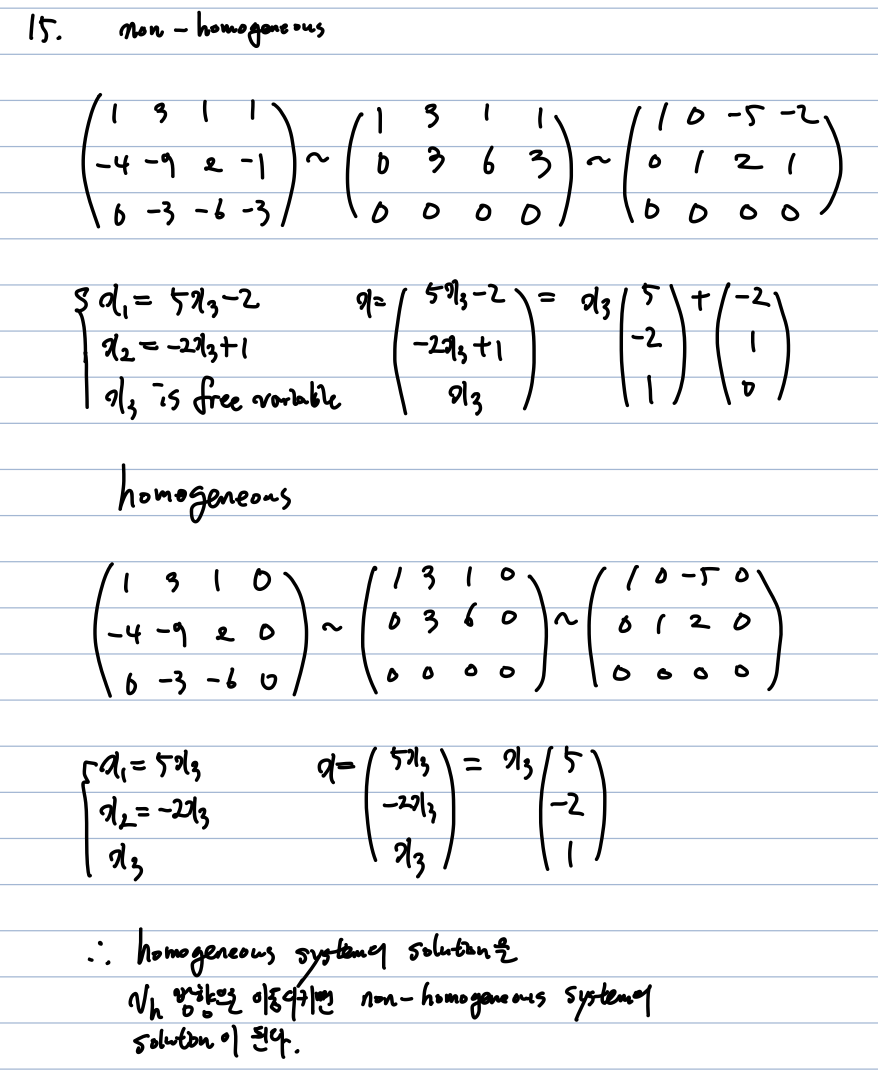 15. non-homogeneous
( 1 3 1 1 ; -4 -9 2 -1 ; 0 -3 -6 -3 ) ~ ( 1 3 1 1 ; 0 3 6 3 ; 0 0 0 0 ) ~ ( 1 0 -5 -2 ; 0 1 2 1 ; 0 0 0 0 )
{ x₁ = 5x₃-2 x = ( 5x₃-2 ; -2x₃+1 ; x₃ ) = x₃ ( 5 ; -2 ; 1 ) + ( -2 ; 1 ; 0 )
x₂ = -2x₃+1
x₃ is free variable
homogeneous
( 1 3 1 0 ; -4 -9 2 0 ; 0 -3 -6 0 ) ~ ( 1 3 1 0 ; 0 3 6 0 ; 0 0 0 0 ) ~ ( 1 0 -5 0 ; 0 1 2 0 ; 0 0 0 0 )
{ x₁ = 5x₃ x = ( 5x₃ ; -2x₃ ; x₃ ) = x₃ ( 5 ; -2 ; 1 )
x₂ = -2x₃
x₃
∴ homogeneous system의 solution을
Vh 방향으로 이동시키면 non-homogeneous system의
solution이 된다.